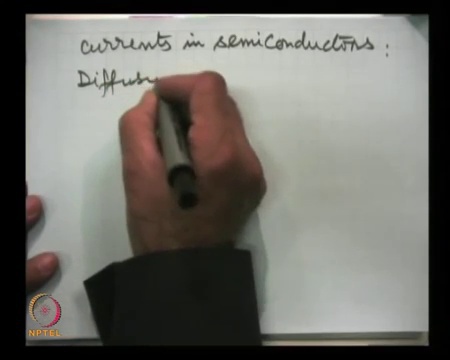 currents in semiconductors :
Diffus
NPTEL